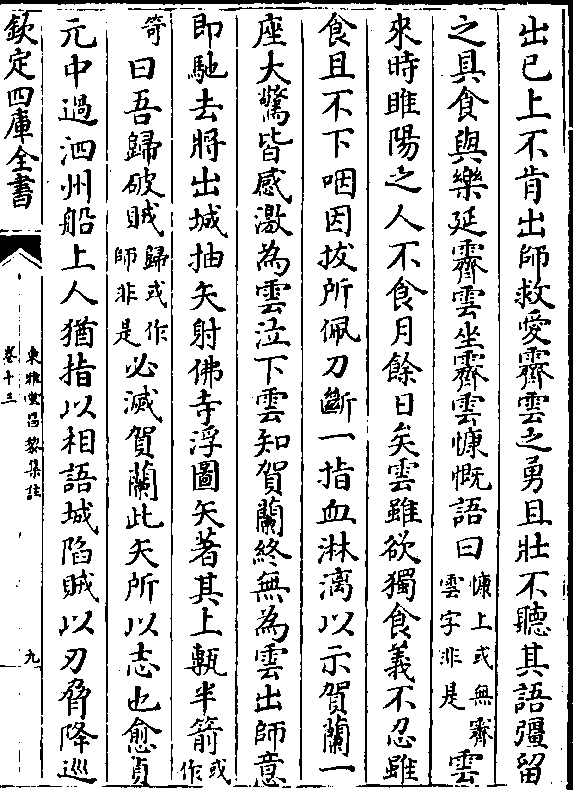 出已上不肯出師救愛霽雲之勇且壯不聽其語彊留
之具食與樂延霽雲坐霽雲慷慨語曰慷上或無霽雲字非是雲
來時睢陽之人不食月餘日矣雲雖欲獨食義不忍雖
食且不下咽因拔所佩刀斷一指血淋漓以示賀蘭一
座大驚皆感激為雲泣下雲知賀蘭終無為雲出師意
即馳去將出城抽矢射佛寺浮圖矢著其上甎半箭或作
笴曰吾歸破賊歸或作師非是必滅賀蘭此矢所以志也愈貞
元中過泗州船上人猶指以相語城陷賊以刃脅降巡
欽定四庫全書
東雅堂昌黎集註
卷十三
九